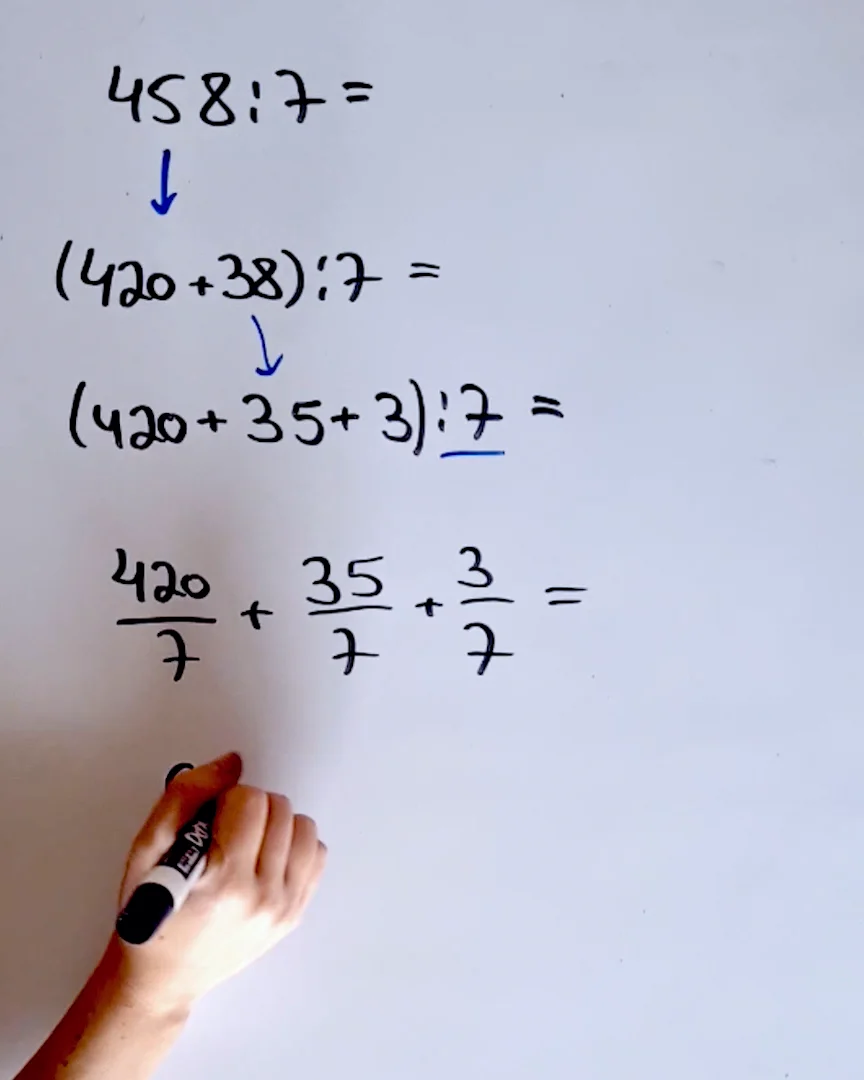 458:7=
(420+38):7=
(420+35+3):7=
420/7 + 35/7 + 3/7 =